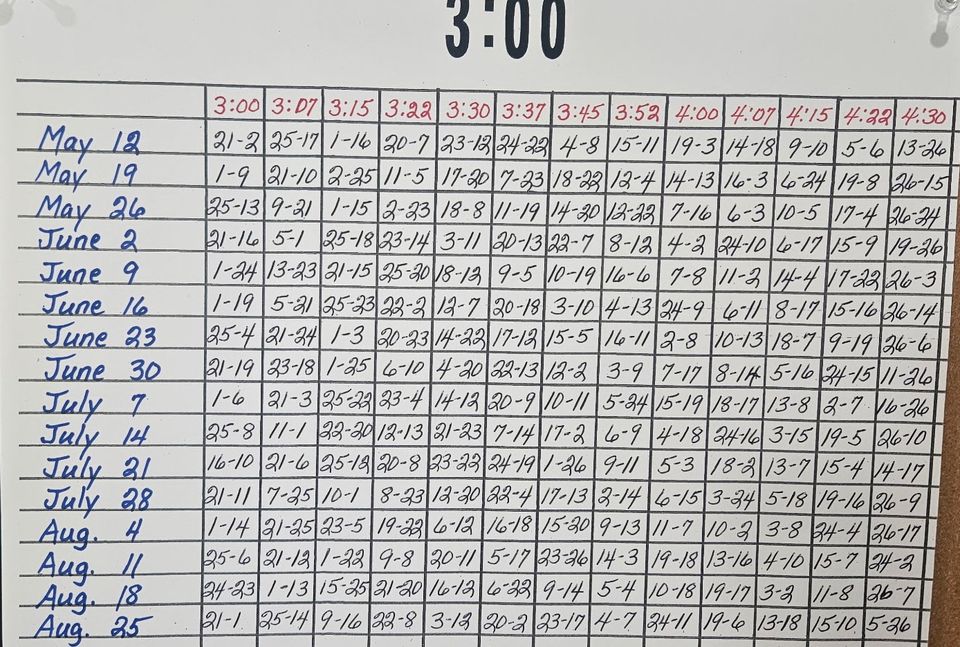 3:00
3:00 3:07 3:15 3:22 3:30 3:37 3:45 3:52 4:00 4:07 4:15 4:22 4:30
May 12 21-2 25-17 1-16 20-7 23-12 24-22 4-8 15-11 19-3 14-18 9-10 5-6 13-26
May 19 1-9 21-10 2-25 11-5 17-20 7-23 18-22 12-4 14-13 16-3 6-24 19-8 26-15
May 26 25-13 9-21 1-15 2-23 18-8 11-19 14-20 12-22 7-16 6-3 10-5 17-4 26-24
June 2 21-16 5-1 25-18 23-14 3-11 20-13 22-7 8-12 4-2 24-10 6-17 15-9 19-26
June 9 1-24 13-23 21-15 25-20 18-12 9-5 10-19 16-6 7-8 11-2 14-4 17-22 26-3
June 16 1-19 5-21 25-23 22-2 12-7 20-18 3-10 4-13 24-9 6-11 8-17 15-16 26-14
June 23 25-4 21-24 1-3 20-23 14-22 17-12 15-5 16-11 2-8 10-13 18-7 9-19 26-6
June 30 21-19 23-18 1-25 6-10 4-20 22-13 12-2 3-9 7-17 8-14 5-16 24-15 11-26
July 7 1-6 21-3 25-22 23-4 14-12 20-9 10-11 5-24 15-19 18-17 13-8 2-7 16-26
July 14 25-8 11-1 22-20 12-13 21-23 7-14 17-2 6-9 4-18 24-16 3-15 19-5 26-10
July 21 16-10 21-6 25-12 20-8 23-22 24-19 1-26 9-11 5-3 18-2 13-7 15-4 14-17
July 28 21-11 7-25 10-1 8-23 12-20 22-4 17-13 2-14 6-15 3-24 5-18 19-16 26-9
Aug. 4 1-14 21-25 23-5 19-22 6-12 16-18 15-20 9-13 11-7 10-2 3-8 24-4 26-17
Aug. 11 25-6 21-12 1-22 9-8 20-11 5-17 23-26 14-3 19-18 13-16 4-10 15-7 24-2
Aug. 18 24-23 1-13 15-25 21-20 16-12 6-22 9-14 5-4 10-18 19-17 3-2 11-8 26-7
Aug. 25 21-1 25-14 9-16 22-8 3-12 20-2 23-17 4-7 24-11 19-6 13-18 15-10 5-26